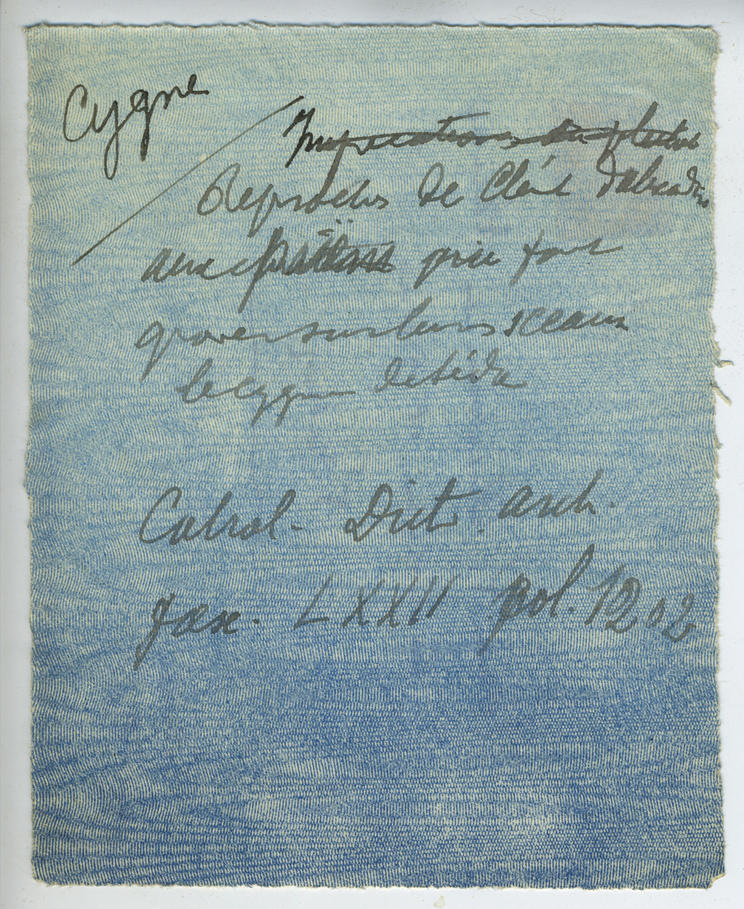 Cygne
Imprecations
Reproches de Clé d'Alexandrie
aux païens qui font
graver sur leurs sceaux
le cygne de Léda
Cabrol - Dict. arch.
fasc. LXXII col. 1202